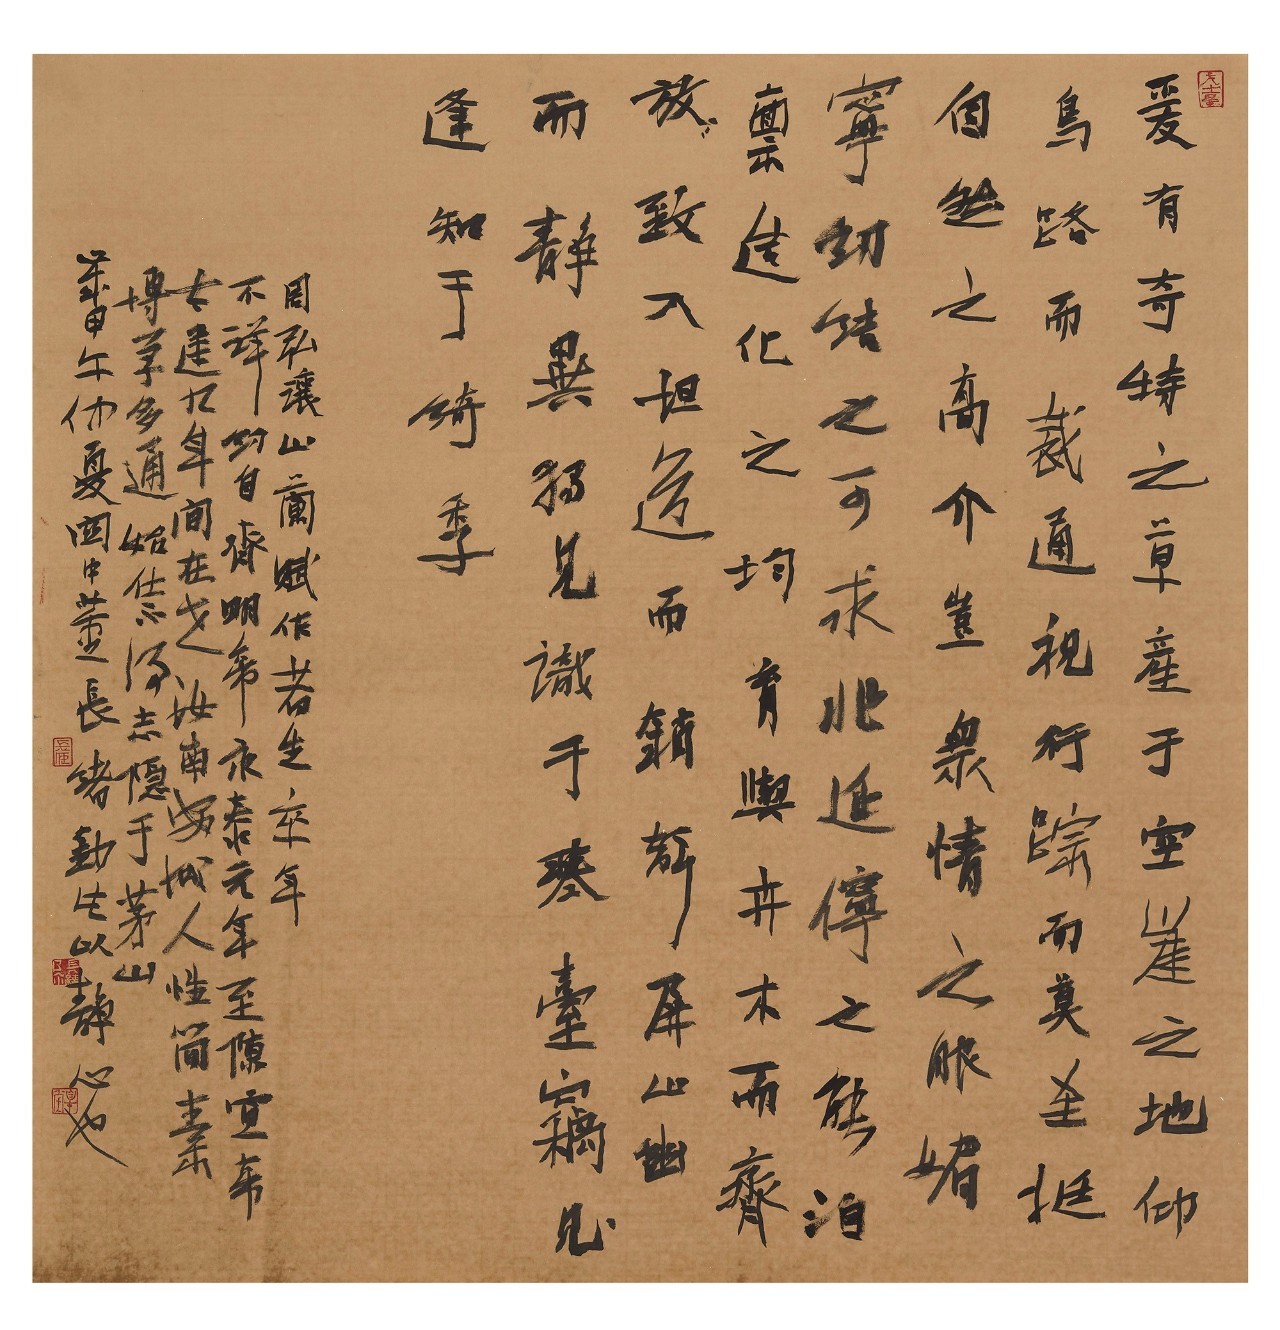 爰有奇特之草產于空崖之地仰
鳥路而裁通視行蹤而莫至挺
自然之高介豈眾情之服媚
寧紉結之可求兆延儜之能泊
稟造化之均育與卉木而齊
致入坦道而銷聲屏山幽
而靜異猶見識于琴臺竊見
逢知于綺季
周弘讓山蘭賦作者生卒年
不詳約自齊明帝永泰元年至陳宣帝
太建九年間在世汝南安城人性簡素
博學多通始仕不得志隱于茅山
甲午仲夏關中董長緒勤生以靜心也